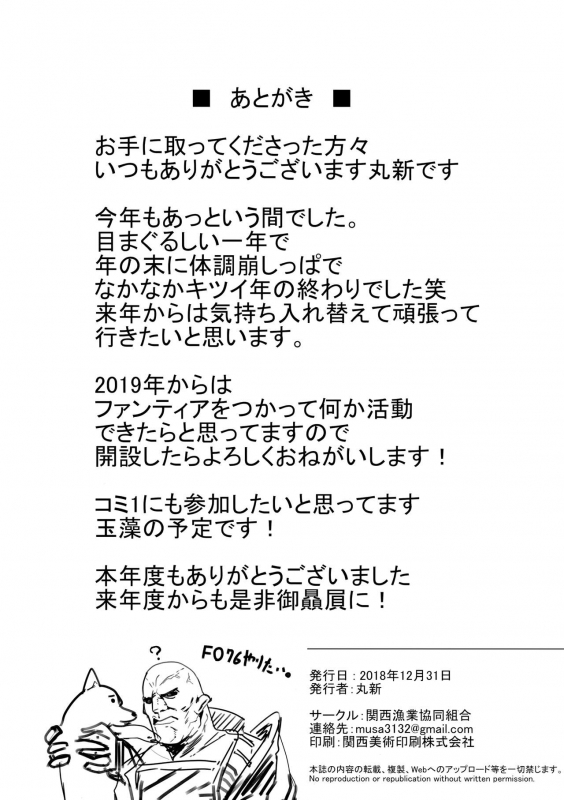 ■ あとがき ■
お手に取ってくださった方々
いつもありがとうございます丸新です
今年もあっという間でした。
目まぐるしい一年で
年の末に体調崩しっぱで
なかなかキツイ年の終わりでした笑
来年からは気持ち入れ替えて頑張って
行きたいと思います。
2019年からは
ファンティアをつかって何か活動
できたらと思ってますので
開設したらよろしくおねがいします！
コミ1にも参加したいと思ってます
玉藻の予定です！
本年度もありがとうございました
来年度からも是非御贔屓に！
?
FO76やりた・・。
発行日：2018年12月31日
発行者：丸新
サークル：関西漁業協同組合
連絡先：musa3132@gmail.com
印刷：関西美術印刷株式会社
本誌の内容の転載、複製、Webへのアップロード等を一切禁じます。
No reproduction or republication without written permission.